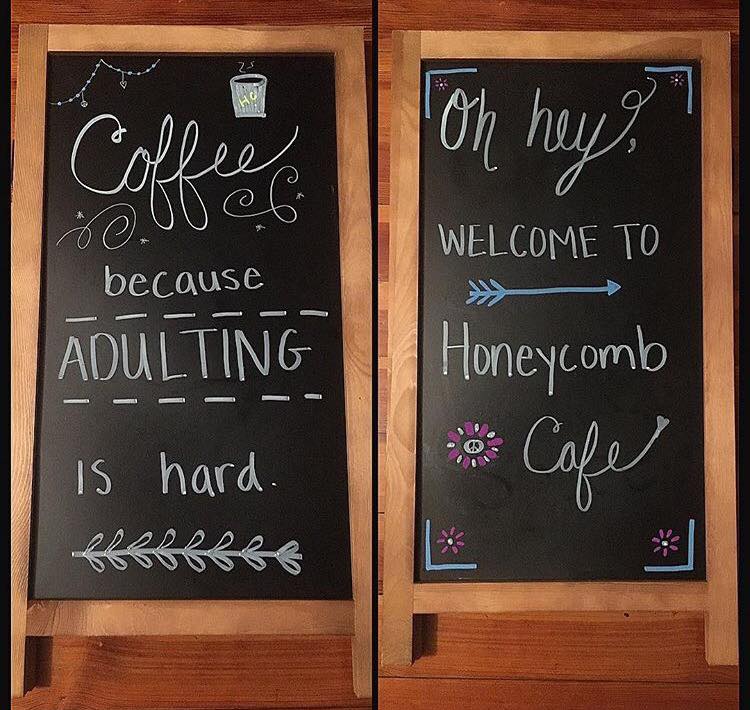 HC
Coffee
because
ADULTING
is hard.
Oh hey,
WELCOME TO
Honeycomb
Cafe